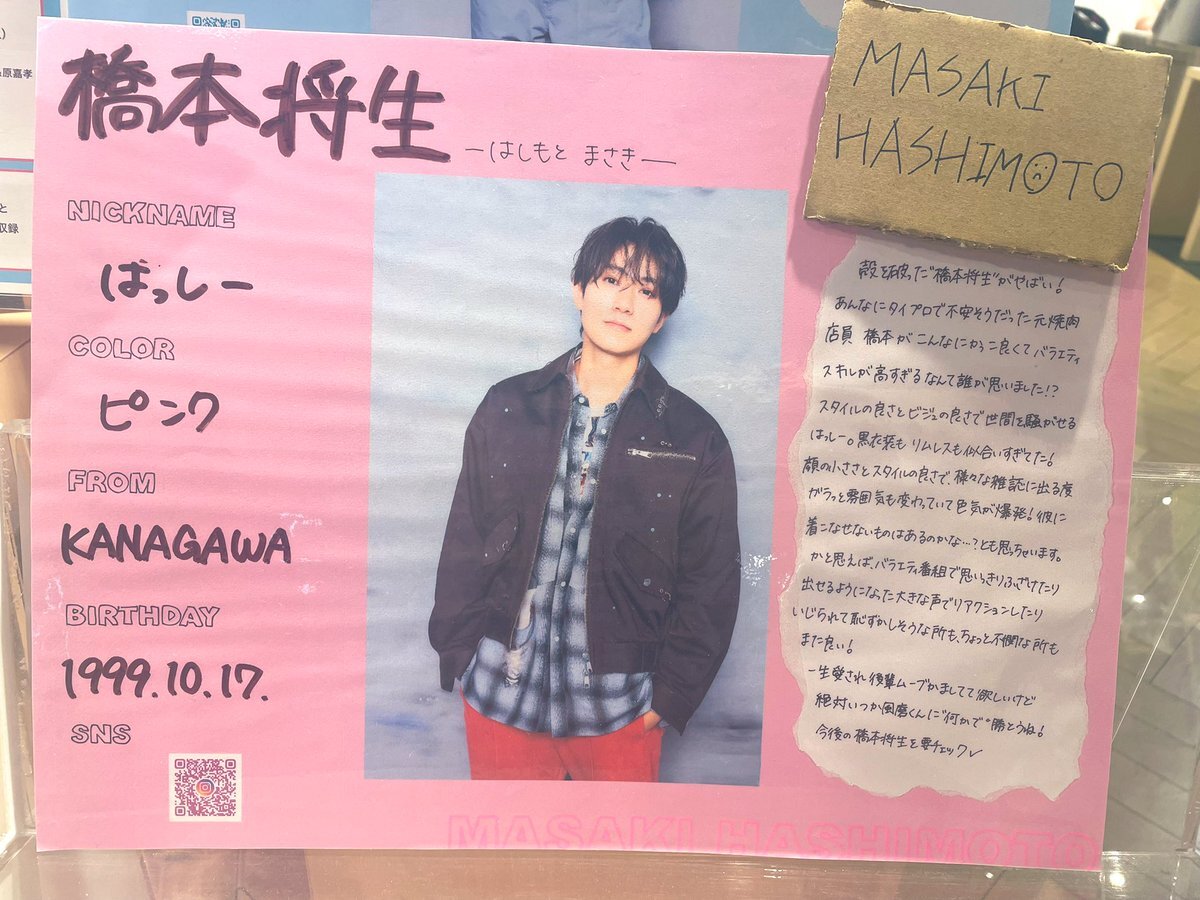 橋本将生
ーはしもと まさきー
MASAKI
HASHIMOTO
NICKNAME
ばっしー
COLOR
ピンク
FROM
KANAGAWA
BIRTHDAY
1999.10.17.
SNS
殻を破った"橋本将生"がやばい!
あんなにタイプロで不安そうだった元焼肉
店員 橋本が こんなにかっこ良くてバラエティ
スキルが高すぎるなんて誰が思いました!?
スタイルの良さとビジュの良さで世間を騒がせる
はっしー。黒衣装も リムレスも似合いすぎてた!
顔の小ささとスタイルの良さで、様々な雑誌に出る度
ガラっと雰囲気も変わっていて色気が爆発!彼に
着こなせないものはあるのかな…?とも思っちゃいます。
かと思えば、バラエティ番組で思いっきりふざけたり
出せるようになった大きな声でリアクションしたり
いじられて恥ずかしそうな所も、ちょっと不憫な所も
また良い!
一生愛され後輩ムーブかましてて欲しいけど
絶対いつか風磨くんに"何かで"勝とうね!
今後の橋本将生を要チェック✓
MASAKI HASHIMOTO
原嘉孝
と
収録